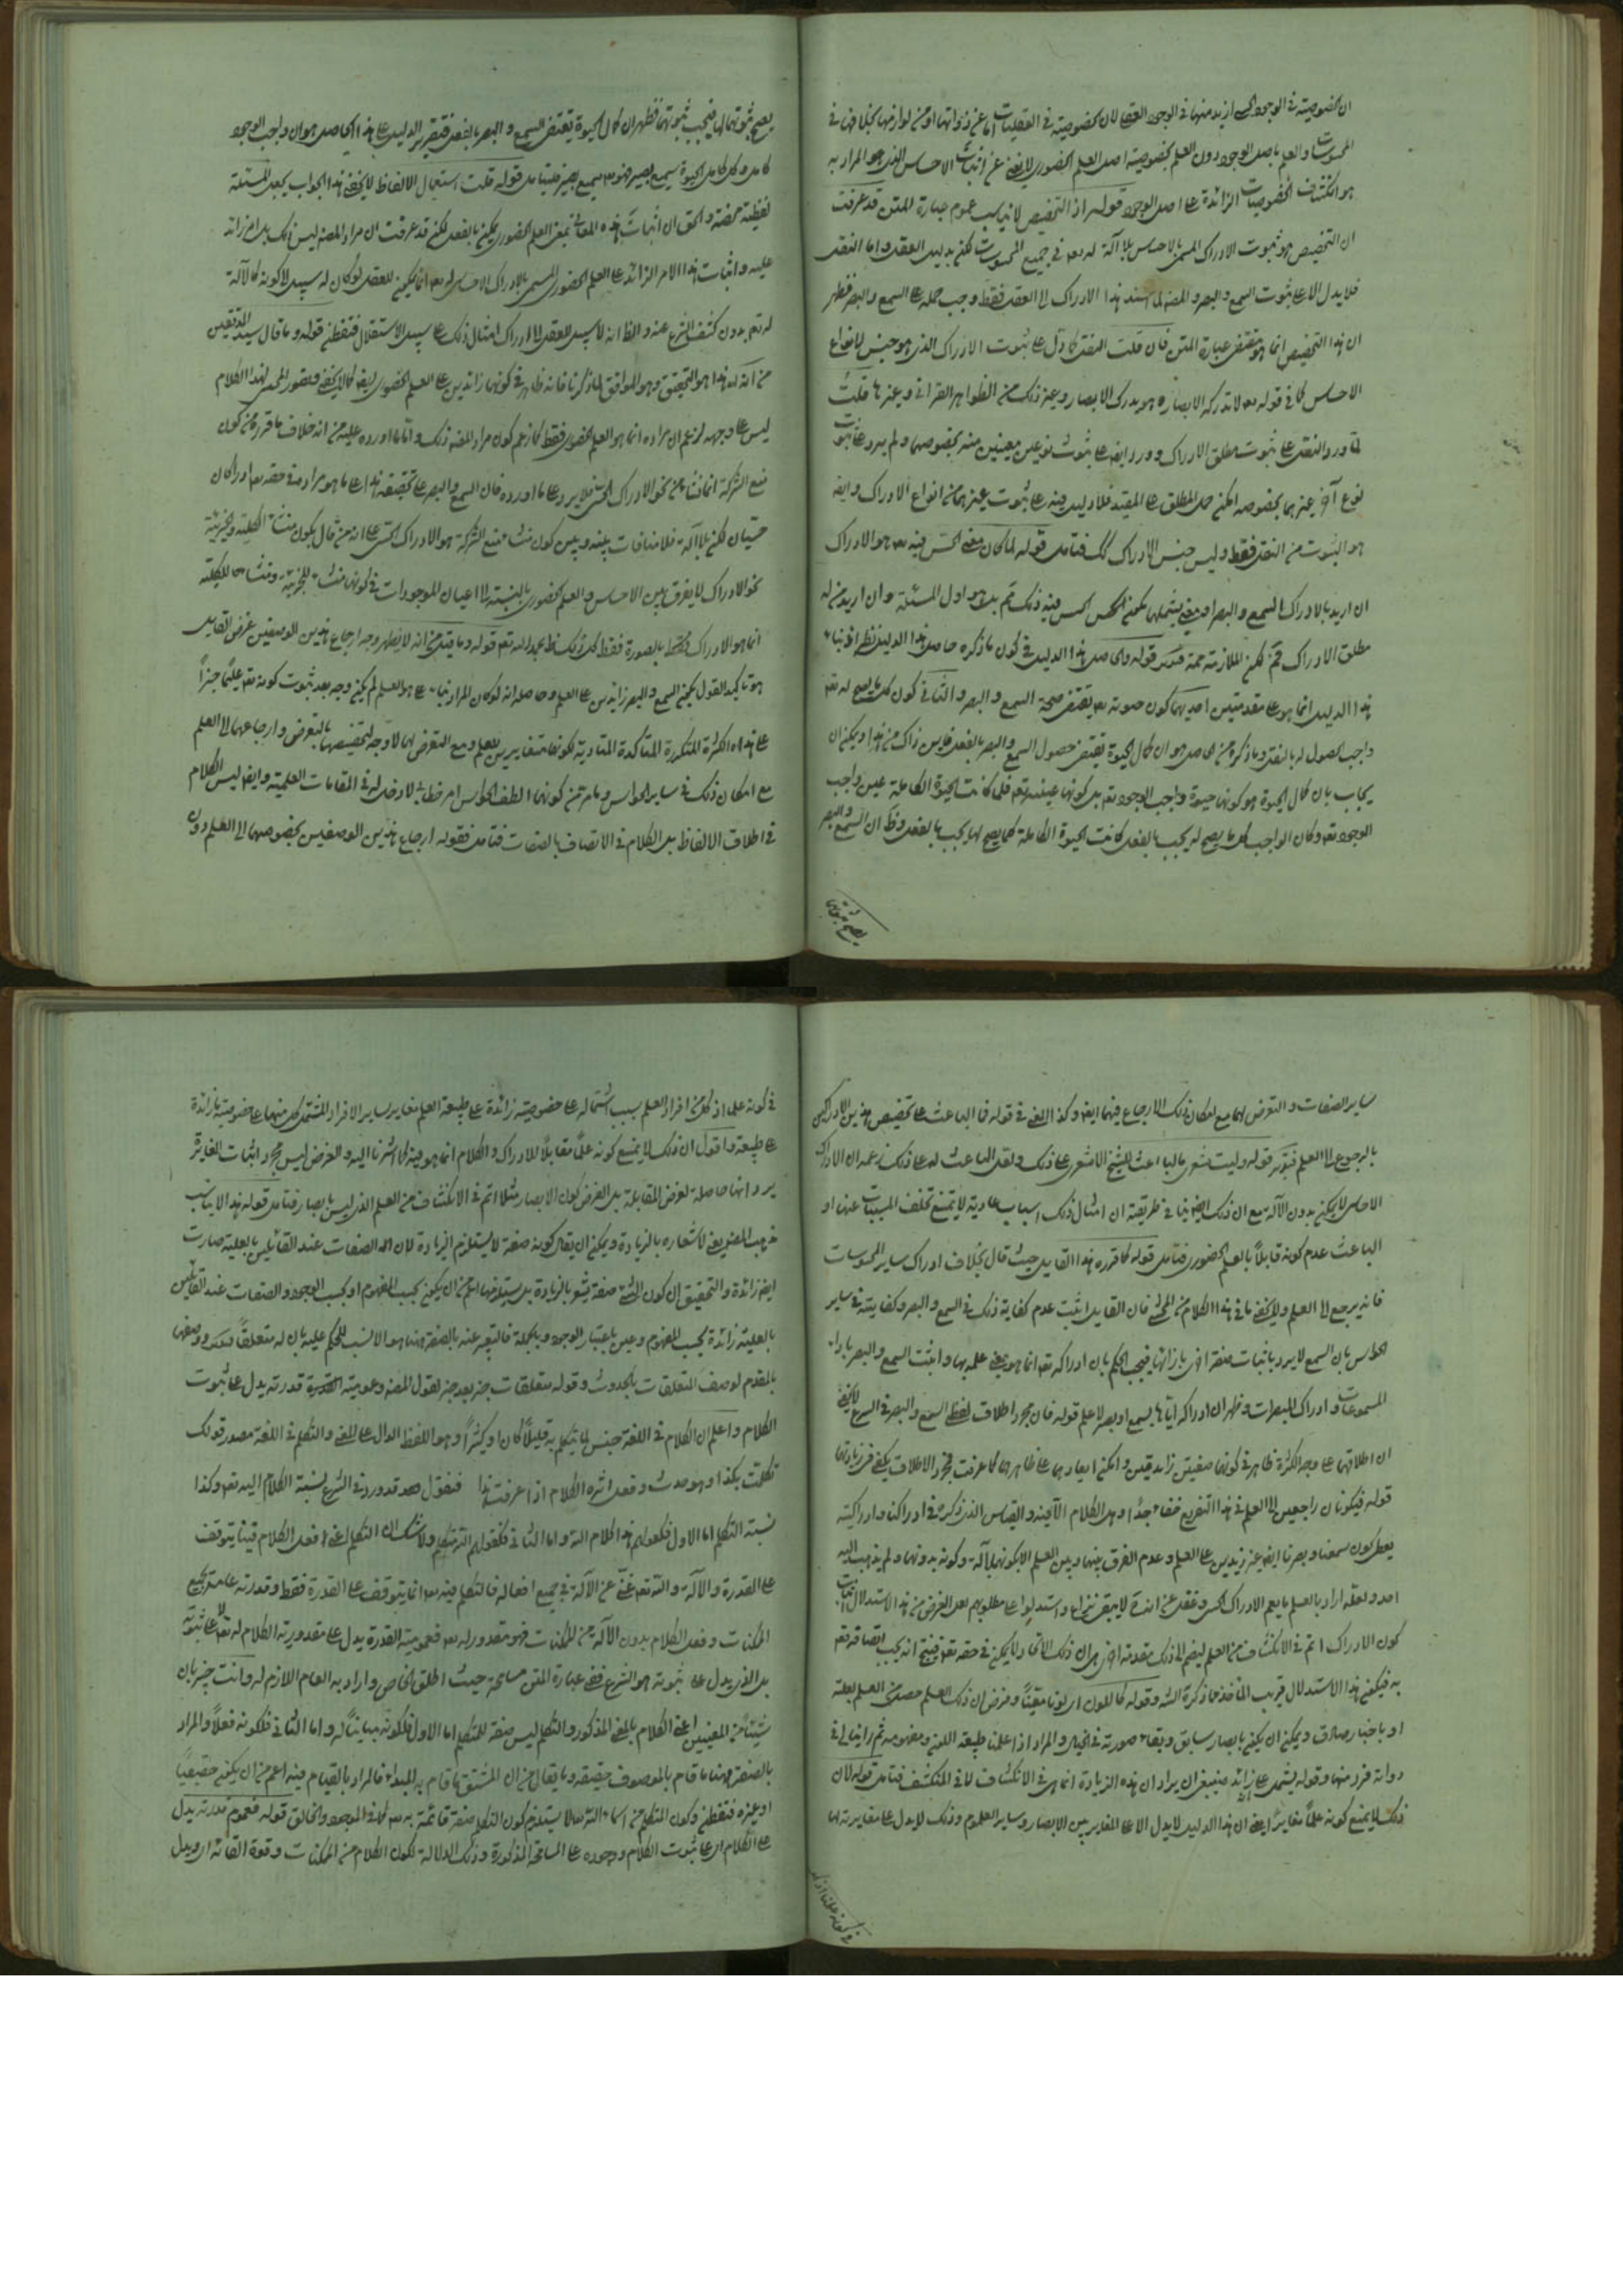 ان الخصوصية في الوجود الحسي ازيد منها في الوجود العقلي لان الخصوصية في العقليات اما عن ذواتها او من لوازمها بخلافها في
المحسوسات والعلم باصل الوجود دون العلم بخصوصية اصل العلم الحضوري لا يغني عن اثبات الاحساس الذي هو المراد به
هو انكشاف الخصوصيات الزائدة على اصل الوجود قوله اذ التخصيص لا يناسب عموم عبارة المتن قد عرفت
ان التخصيص هو ثبوت الادراك المسمى بالاحساس بلا آلة له تعه في جميع المحسوسات لكن بدليل العقل واما النقل
فلا يدل الا على ثبوت السمع والبصر والمصنف لما اسند هذا الادراك الى العقل فقط وجب حمله على السمع والبصر فظهر
ان هذا التخصيص انما هو مقتضى عبارة المتن فان قلت النقل كما دل على ثبوت الادراك الذي هو جنس لانواع
الاحساس كما في قوله تعه لا تدركه الابصار وهو يدرك الابصار وغير ذلك من الظواهر القرآنية وغيرها قلت
لما ورد النقل على ثبوت مطلق الادراك وورد ايضا على ثبوت نوعين معينين منه بخصوصهما ولم يرد على ثبوت
نوع آخر غيرهما بخصوصه امكن حمل المطلق على المقيد فلا دليل فيه على ثبوت غيرهما من انواع الادراك وايضا
هو الثبوت من النقل فقط وليس جنس الادراك كك فتامل قوله لما كان معنى الحس فيه تعه هو الادراك
ان اريد بالادراك السمع والبصر او معنى يشملهما يمكن الحس فيه ذلك ثم بل هو اول المسئلة وان اريد منه
مطلق الادراك فثم لكن الملازمة ممنوعة فتدبر قوله والحاصل هذا الدليل في كون ما ذكره حاصل هذا الدليل نظر اذ بناء
هذا الدليل انما هو على مقدمتين احديهما كون حيوته تعه يقتضي صحة السمع والبصر والثاني كون كل ما يصح له تعه
واجب الحصول له بالفعل وما ذكره من الحاصل هو ان كمال الحيوة يقتضي حصول السمع والبصر بالفعل فاين ذاك من هذا ويمكن ان
يجاب بان كمال الحيوة هو كونها حيوة واجب الوجود تعه بل كونها عينه تعه فلما كانت الحيوة الكاملة عين واجب
الوجود تعه وكان الواجب كل ما يصح له يجب بالفعل كانت الحيوة الكاملة كلما يصح لها يجب بالفعل وظ ان السمع والبصر
يصح ثبوتهما
يصح ثبوتهما لها فيجب ثبوتهما فظهر ان كمال الحيوة يقتضي السمع والبصر بالفعل فتقرير الدليل على هذا الحاصل هو ان واجب الوجود
كامل وكل كامل الحيوة سميع بصير فهو تعه سميع بصير فليتامل قوله قلت استعمال الالفاظ لا يخفى هذا الجواب يجعل المسئلة
لفظية محضة والحق ان اثبات هذه المعاني بمعنى العلم الحضوري يمكن بالعقل لكن قد عرفت ان مراد المصنف ليس ذلك بل امر زائد
عليه واثبات هذا الامر الزائد على العلم الحضوري المسمى بالادراك الاحساسي له تعه انما يمكن للعقل لو كان له سبيل لا كونه كالآلة
له تعه بدون كشف الشرع عنه والظ انه لا سبيل للعقل الى ادراك امثال ذلك على سبيل الاستقلال فتفطن قوله وما قال سيد المدققين
من انه بعد هذا هو التحقيق وهو الموافق لما ذكرنا فانه ظاهر في كونهما زائدين على العلم الحضوري ايضا كما لا يخفى وتصور المحشي لهذا الكلام
ليس على وجهه لزعم ان مراده انما هو العلم الحضوري فقط كما زعم كون مراد المصنف ذلك واما ما اورده عليه من انه خلاف ما قرره من كون
منع الشركة انما نشأ من نحو الادراك الحسي فلا يرد على ما اورده فان السمع والبصر على تحقيقه هذا على ما هو مراده في حقه تعه ادراكان
حسيان لكن بلا آلة فلا منافات بينه وبين كون منشأ منع الشركة هو الادراك الحسي على انه من قال بكون منشأ الكلية والجزئية
نحو الادراك لا يفرق بين الاحساس والعلم الحضوري بالنسبة الى اعيان الموجودات في كونهما منشأ للجزئية ومنشأ الكلية
انما هو الادراك بالصورة فقط كل ذلك ظ بحمد الله تعه قوله وما يقال من انه لا يظهر وجه ارجاع هذين الوصفين غرض القايل
هو تاكيد القول بكون السمع والبصر زائدين على العلم وحاصله انه لو كان المراد بهما هو العلم لم يكن وجه بعد ثبوت كونه تعه عليما خبيرا
على هذه الكثرة المتكررة المتاكدة المتادية لكونهما متغايرين للعلم ومع التعرض لهما لا وجه لتخصيصهما بالتعرض وارجاعهما الى العلم
مع امكان ذلك في ساير الحواس وما مر من كونهما الطف الحواس امر خطابي لا دخل له في المقامات العلمية وايضا ليس الكلام
في اطلاق الالفاظ بل الكلام في الاتصاف بالصفات فتامل فقوله ارجاع هذين الوصفين بخصوصهما الى العلم دون
ساير الصفات والتعرض لهما مع امكان ذلك الارجاع فيها ايضا وكذا المعنى في قوله فالباعث على تخصيص هذين الادراكين
بالرجوع الى العلم فتدبر قوله وليت شعري ما الباعث للشيخ الاشعري على ذلك ولعل الباعث له على ذلك زعمه ان الادراك
الاحساسي لا يمكن بدون الآلة مع ان ذلك ايضا ينافي طريقته ان امثال ذلك اسباب عادية لا يمتنع تخلف المسببات عنها او
الباعث عدم كونه قابلا بالعلم الحضوري فتامل قوله كما قرره هذا القايل حيث قال بخلاف ادراك ساير المحسوسات
فانه يرجع الى العلم ولا يخفى ما في هذا الكلام من المحشي فان القايل اثبت عدم كفاية ذلك في السمع والبصر وكفايته في ساير
الحواس بان السمع لا يرد باثبات صفة اخرى بازائها فيجب الحكم بان ادراكه تعه انما هو بمعنى علمه بها واثبت السمع والبصر بازاء
المسموعات وادراك المبصرات وظهر ان ادراكه اياها بسمع او بصر لا علم قوله فان مجرد اطلاق لفظ السمع والبصر في الشرع لا يخفى
ان اطلاقهما على وجه الكثرة ظاهر في كونهما صفتين زائدتين وامكن ابقاؤهما على ظاهرهما كما عرفت فمجرد الاطلاق يكفي في زيادتهما
قوله فيكونان راجعين الى العلم في هذا التفريع خفاء جدا وهل الكلام الا فيه والقياس الذي ذكره في ادراكنا وادراكيته
يعطي كون سمعنا وبصرنا ايضا غير زايدين على العلم وعدم الفرق بينهما وبين العلم الا بكونهما بالآلة وكونه بدونها ولم يذهب اليه
احد ولعله اراد بالعلم ما يعم الادراك الحسي وغفل عن انه لا يبقى نزاع واستدلوا على مطلوبهم لعل الغرض من هذا الاستدلال اثبات
كون الادراك اتم في الانكشاف من العلم ليضم الى ذلك مقدمة اخرى هي ان ذلك الاتم لا يمكن في حقه تعه فينتج انه يجب اتصافه تعه
به فيكون هذا الاستدلال قريب الماخذ مما ذكره الشارح وقوله كاللون اي لونا معينا وفرض ان ذلك العلم حصل من العلم بعلته
او باخبار صادق ويمكن ان يكون بابصار سابق وبقاء صورته في الخيال والمراد اذا علمنا طبيعة اللون ومفهومه ثم راينا لونا في
دواته فرد منها وقوله يشتمل على زائد فينبغي ان يراد ان هذه الزيادة انما هي في الانكشاف لا في المنكشف فتامل قوله لان
ذلك لا يمنع كونه علما مغايرا يعني ان هذا الدليل لا يدل الا على المغايرة بين الابصار وساير العلوم وذلك لا يدل على مغايرته لها
في كونه علما اذ كل
في كونه علما اذ كل من افراد العلم بسبب اشتماله على خصوصية زائدة على طبيعة العلم مغاير لساير الافراد المشتمل كل منها على خصوصية زائدة
على طبيعته واقول ان ذلك لا يمنع كونه علما مقابلا للادراك والكلام انما هو فيه كما اشرنا اليه والغرض ليس مجرد اثبات المغايرة
يرد انها حاصلة لفرض المقابلة بل الغرض كون الابصار مثلا اتم في الانكشاف من العلم الذي ليس بابصار فتامل قوله هذا لا يناسب
مذهب المصنف يعني لاشعاره بالزيادة ويمكن ان يقال كونه صفة لا يستلزم الزيادة لان هذه الصفات عند القائلين بالعينية صارت
ايضا زائدة والتحقيق ان كون الشئ صفة يشعر بالزيادة بل يستلزمها اعم من ان يكون بحسب المفهوم او بحسب الوجود والصفات عند القائلين
بالعينية زائدة بحسب المفهوم وعين باعتبار الوجود وبالجملة فالتعبير عنه بالصفة ههنا هو الانسب للحكم عليه بان له متعلقا فتدبر ووصفها
بالقدم لوصف المتعلقات بالحدوث وقوله متعلقات خبر بعد خبر لقول المصنف وعمومية القدرة قدرته يدل على ثبوت
الكلام واعلم ان الكلام في اللغة جنس لما يتكلم به قليلا كان او كثيرا وهو اللفظ الدال على المعنى والتكلم في اللغة مصدر قولك
تكلمت بكذا وهو حدث وفعل اثره الكلام اذا عرفت هذا فنقول قد ورد في الشرع نسبة الكلام اليه تعه وكذا
نسبة التكلم اما الاول فكقولهم هذا كلام الله واما الثاني فكقولهم الله متكلم ولا شك ان التكلم اعني فعل الكلام فينا يتوقف
على القدرة والآلة والله تعه غني عن الآلة في جميع افعاله فالتكلم فيه تعه انما يتوقف على القدرة فقط وقدرته عامة لجميع
الممكنات وفعل الكلام بدون الآلة من الممكنات فهو مقدور له تعه فعمومية القدرة يدل على مقدورية الكلام له تعه لا على ثبوته
بل الذي يدل على ثبوته هو الشرع ففي عبارة المتن مسامحة حيث اطلق الخاص واراد به العام اللازم له وانت خبير بان
شيئا من المعنيين اعني الكلام بالمعنى المذكور والتكلم ليس صفة للمتكلم اما الاول فلكونه مباينا له واما الثاني فلكونه فعلا والمراد
بالصفة ههنا ما قام بالموصوف حقيقة وما يقال من ان المشتق ما قام به المبدا فالمراد بالقيام فيه اعم من ان يكون حقيقيا
او غيره فتفطن وكون المتكلم من اسماء الله تعالى لا يستلزم كون التكلم صفة قائمة به تعه كما في الموجد والخالق قوله فعموم قدرته يدل
على الكلام اي على ثبوت الكلام ووجوده على المسامحة المذكورة وذلك الدلالة لكون الكلام من الممكنات وقوة القائه او يدل